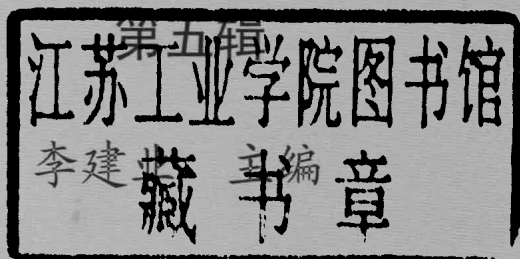 第五辑
江苏工业学院图书馆
李建 主编
藏书章